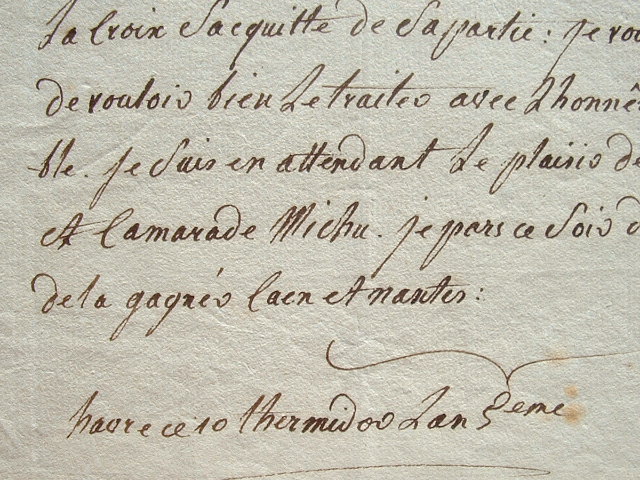 La Croix Sacquitte de Sapartie: je vou
de vouloir bien Le traiter avec Lhonnê
ble. je Suis en attendant Le plaisir de
et Camarade Michu. je pars ce Soir d
de la gagner Caen et nantes:
havre ce 10 thermidor Lan 5eme